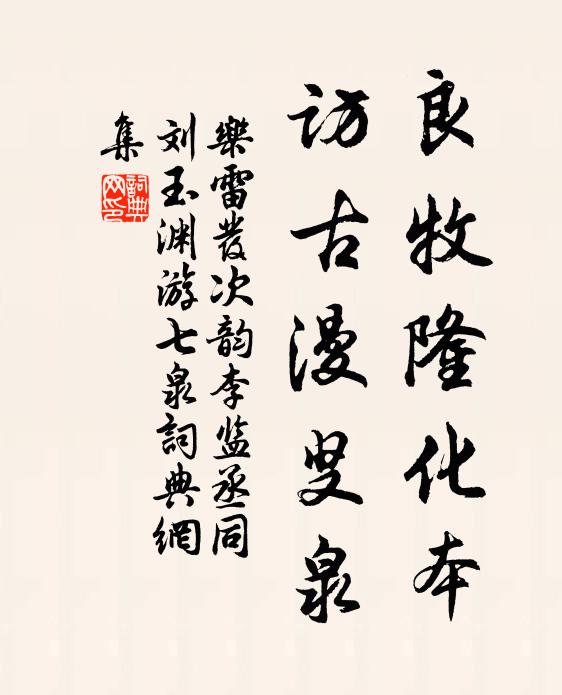 良牧隆化本
訪古漫叟泉
樂雷發次韵李监丞同
刘玉渊游七泉詞典網
集
詞典網印